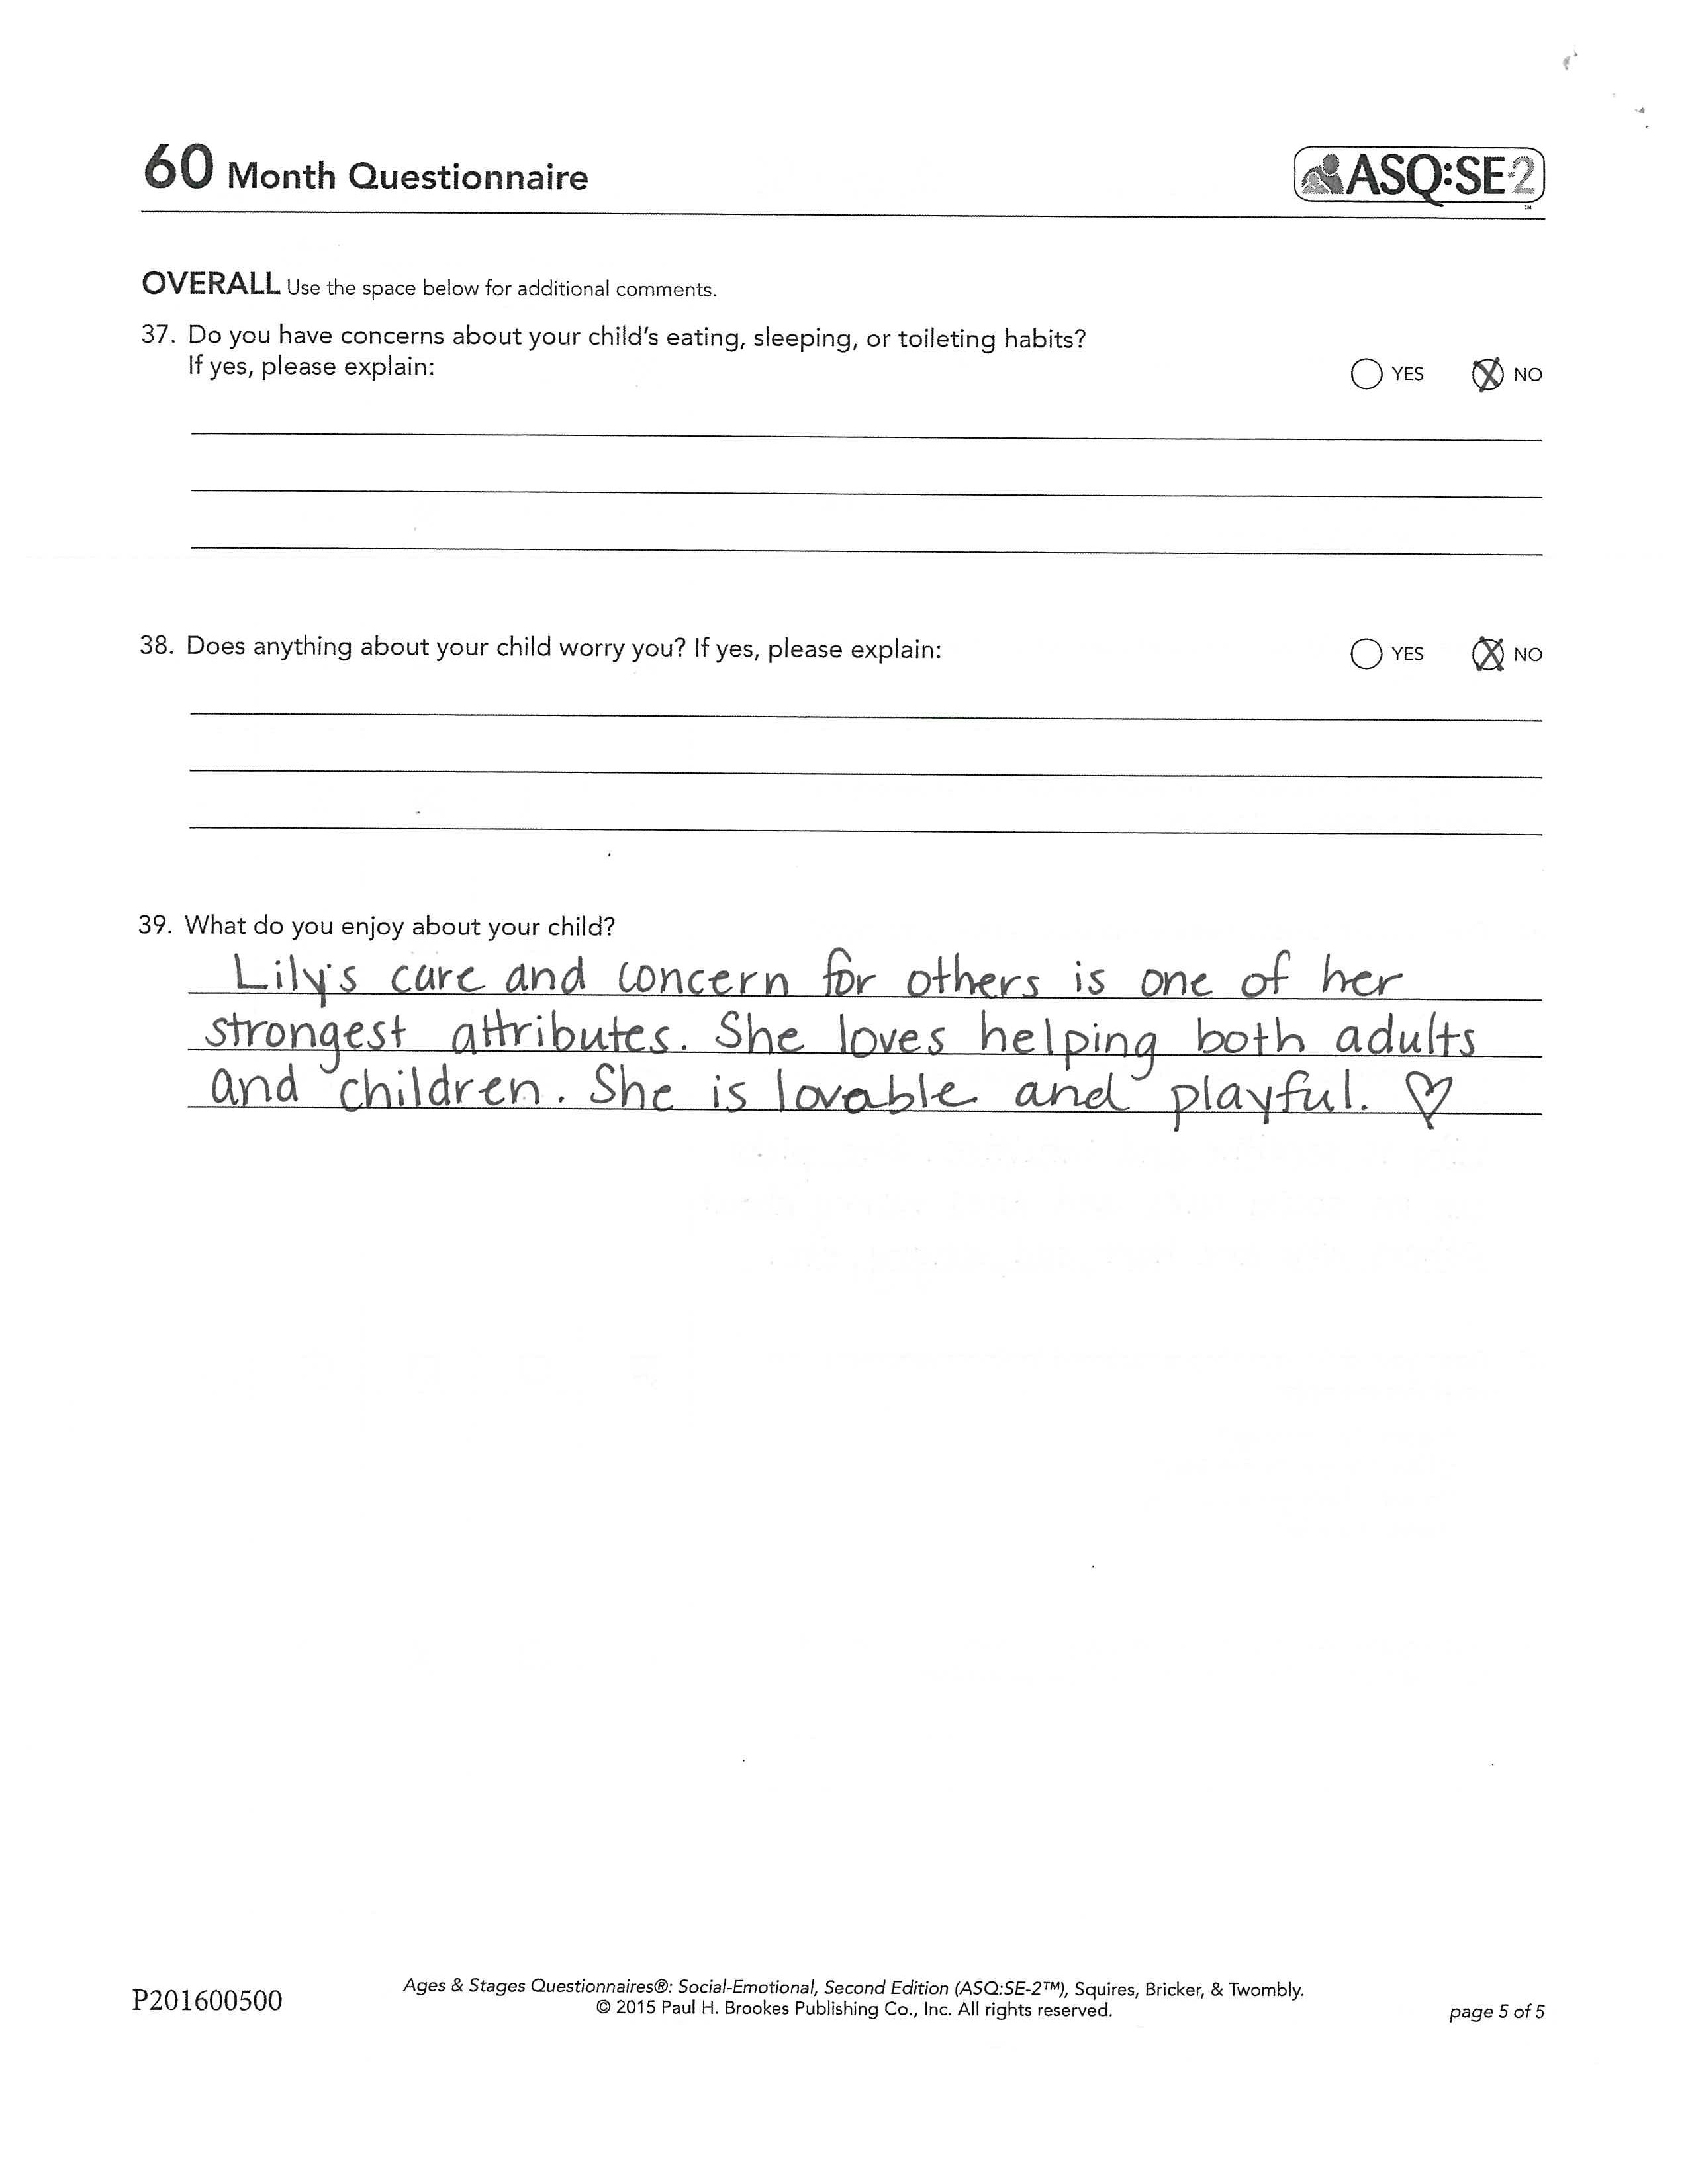 60 Month Questionnaire
ASQ:SE-2™
OVERALL Use the space below for additional comments.
37. Do you have concerns about your child's eating, sleeping, or toileting habits?
If yes, please explain:
YES NO
38. Does anything about your child worry you? If yes, please explain:
YES NO
39. What do you enjoy about your child?
Lily's care and concern for others is one of her
strongest attributes. She loves helping both adults
and children. She is lovable and playful. ♡
P201600500
Ages & Stages Questionnaires®: Social-Emotional, Second Edition (ASQ:SE-2™), Squires, Bricker, & Twombly.
© 2015 Paul H. Brookes Publishing Co., Inc. All rights reserved.
page 5 of 5